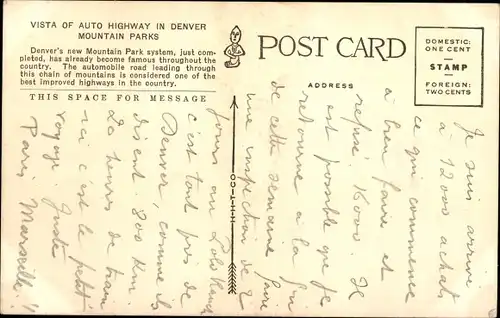 VISTA OF AUTO HIGHWAY IN DENVER
MOUNTAIN PARKS
Denver's new Mountain Park system, just com-
pleted, has already become famous throughout the
country. The automobile road leading through
this chain of mountains is considered one of the
best improved highways in the country.
THIS SPACE FOR MESSAGE
POST CARD
ADDRESS
DOMESTIC:
ONE CENT
STAMP
FOREIGN:
TWO CENTS
C.T.-H.H.-O.
Je suis arrivé
à 12000 achats
ce qui commence
à bien faire et
refusé 16000. Il
est possible que je
retourne à la fin
de cette semaine faire
une inspection de 2
jours au Ranch
c'est tout près de
Denver, comme ils
disent. 800 Km.
22 heures de train
ici c'est le petit
voyage. Juste
Paris Marseille !!